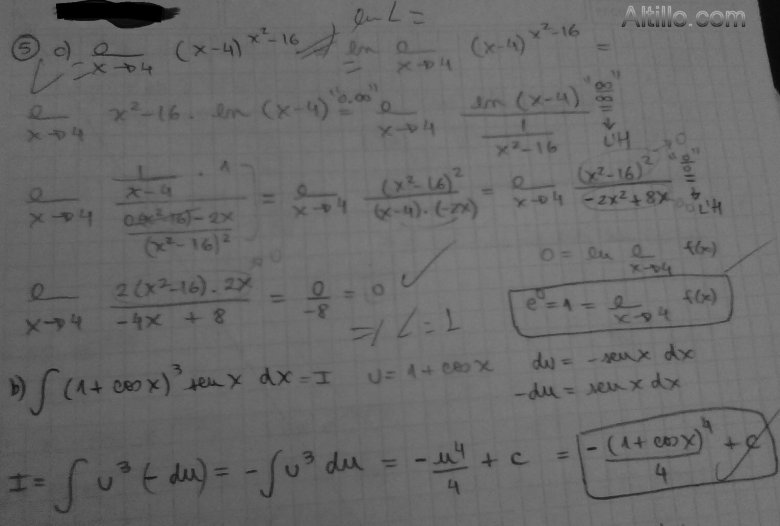 Altillo.com
ln L =
5 c) ℓ x→4 (x-4)^(x²-16) ⇒ ln ℓ x→4 (x-4)^(x²-16) =
ℓ x→4 x²-16 . ln (x-4) "0.∞" = ℓ x→4 ln (x-4) / (1/(x²-16)) "∞/∞" = L'H
ℓ x→4 (1/(x-4) . 1) / ((0.(x²-16) - 2x)/(x²-16)²) = ℓ x→4 (x²-16)² / ((x-4).(-2x)) = ℓ x→4 (x²-16)² →0 / (-2x²+8x) →0 "0/0" = L'H
0 = ln ℓ x→4 f(x)
ℓ x→4 2(x²-16).2x →0 / (-4x + 8) = 0/-8 = 0 ✓
e⁰ = 1 = ℓ x→4 f(x)
⇒ L = 1
b) ∫ (1 + cos x)³ sen x dx = I u = 1 + cos x du = -sen x dx
-du = sen x dx
I = ∫ u³ (-du) = -∫ u³ du = -u⁴/4 + c = -(1 + cos x)⁴/4 + c